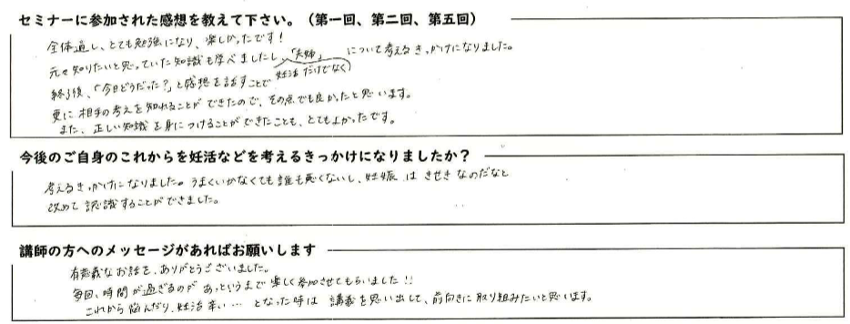 セミナーに参加された感想を教えて下さい。（第一回、第二回、第五回）
全体通し、とても勉強になり、楽しかったです！
元々知りたいと思っていた知識も学べましたし、妊活だけでなく「夫婦」について考えるきっかけになりました。
終了後、「今日どうだった？」と感想を話すことで
更に相手の考えを知れることができたので、その点でも良かったと思います。
また、正しい知識を身につけることができたことも、とてもよかったです。
今後のご自身のこれからを妊活などを考えるきっかけになりましたか？
考えるきっかけになりました。うまくいかなくても誰も悪くないし、妊娠はきせきなのだなと
改めて認識することができました。
講師の方へのメッセージがあればお願いします
有意義なお話を、ありがとうございました。
毎回、時間が過ぎるのがあっというまで楽しく参加させてもらいました!!
これから悩んだり、妊活辛い…となった時は講義を思い出して、前向きに取り組みたいと思います。